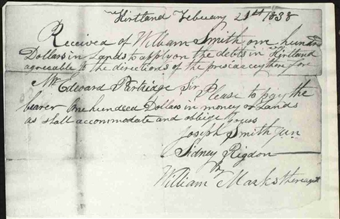 Kirtland Febuary 21st 1838
Received of William Smith one hundred
Dollars in Lands to apply on the debts in Kirtland
agreeable to the directions of the
Mr Edward Partridge Sir Please to pay the
bearer One hundred Dollars in money or Lands
as shall accommodate and oblige yours
Joseph Smith Jun
Sidney Rigdon
By
William Marks there agent